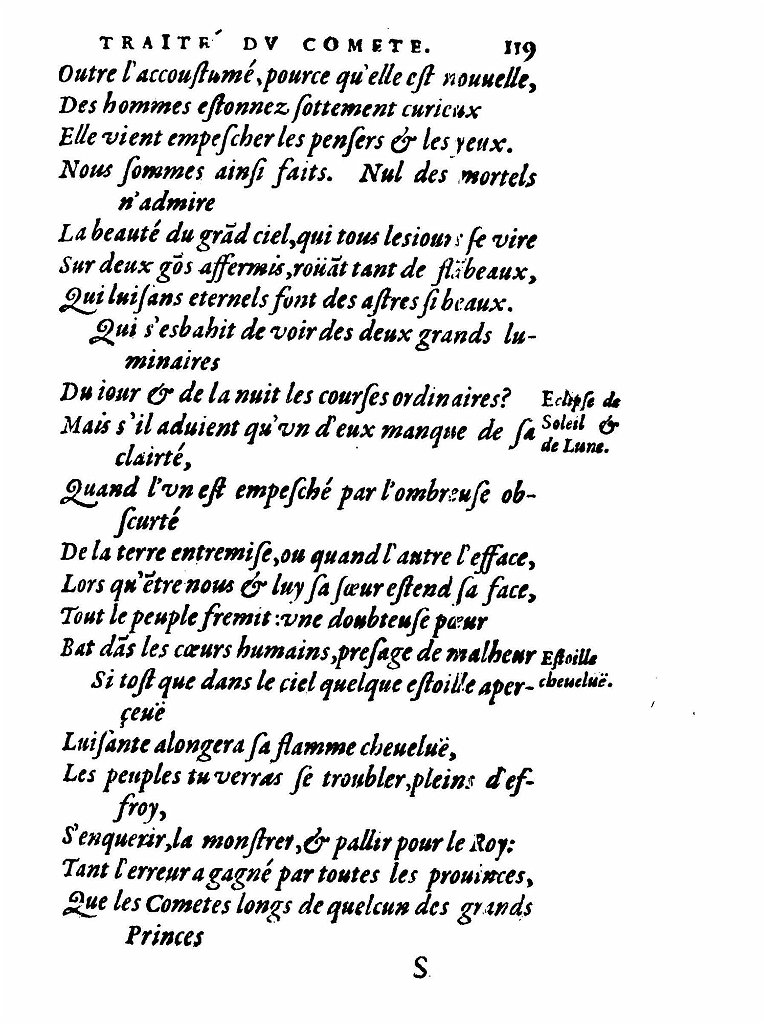 TRAITE´ DV COMETE. 119
Outre l'accouſtumé, pource qu'elle eſt nouuelle,
Des hommes eſtonnez ſottement curieux
Elle vient empeſcher les penſers & les yeux.
Nous ſommes ainſi faits. Nul des mortels
n'admire
La beauté du grãd ciel, qui tous les iours ſe vire
Sur deux gõs affermis, roüãt tant de flãbeaux,
Qui luiſans eternels font des aſtres ſi beaux.
Qui s'esbahit de voir des deux grands lu-
minaires
Du iour & de la nuit les courſes ordinaires?
Eclipſe de
Soleil &
de Lune.
Mais s'il aduient qu'vn d'eux manque de ſa
clairté,
Quand l'vn eſt empeſché par l'ombreuſe ob-
ſcurté
De la terre entremiſe, ou quand l'autre l'efface,
Lors qu'ẽtre nous & luy ſa ſœur eſtend ſa face,
Tout le peuple fremit: vne doubteuſe pœur
Bat dãs les cœurs humains, preſage de malheur
Eſtoille
cheueluë.
Si toſt que dans le ciel quelque eſtoille aper-
çeuë
Luiſante alongera ſa flamme cheueluë,
Les peuples tu verras ſe troubler, pleins d'ef-
froy,
S'enquerir, la monſtrer, & pallir pour le Roy:
Tant l'erreur a gagné par toutes les prouinces,
Que les Cometes longs de quelcun des grands
Princes
S